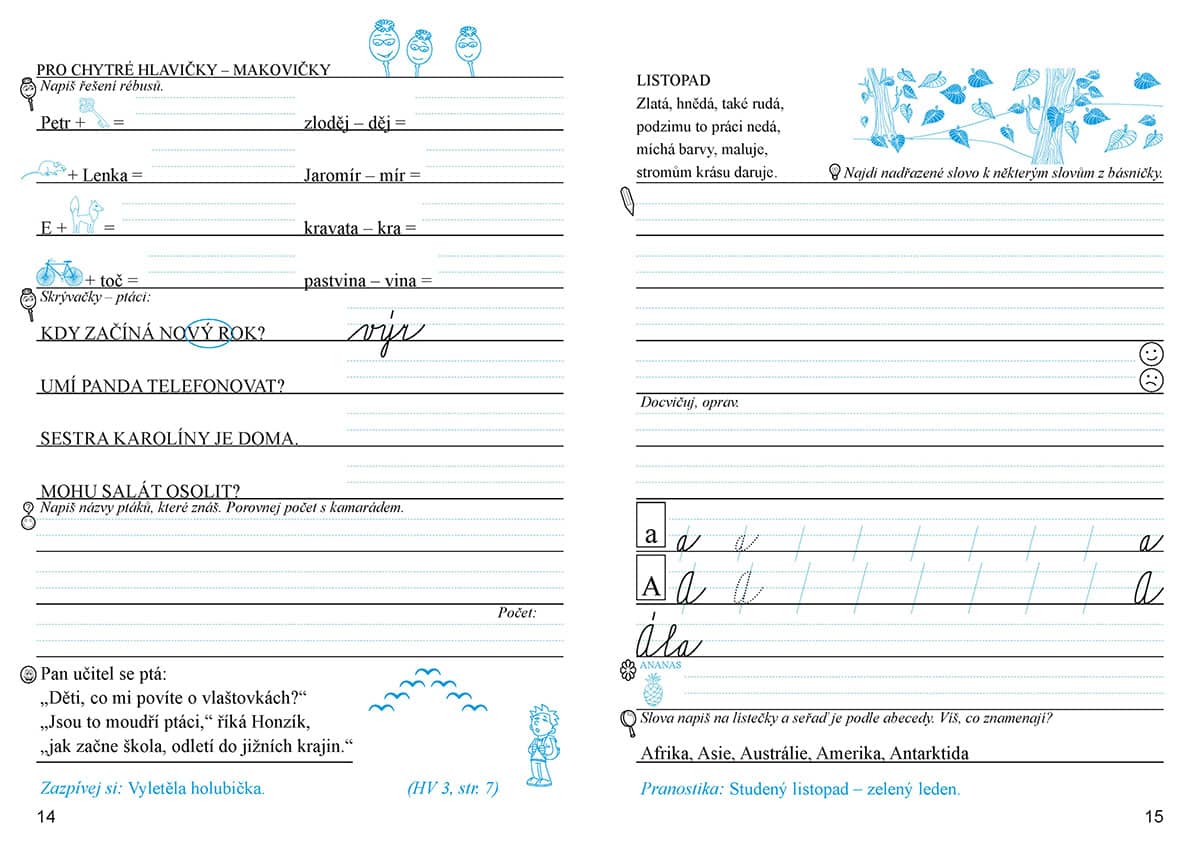 PRO CHYTRÉ HLAVIČKY – MAKOVIČKY
Napiš řešení rébusů.
Petr + =
zloděj – děj =
+ Lenka =
Jaromír – mír =
E + =
kravata – kra =
+ toč =
pastvina – vina =
Skrývačky – ptáci:
KDY ZAČÍNÁ NOVÝ ROK?
výr
UMÍ PANDA TELEFONOVAT?
SESTRA KAROLÍNY JE DOMA.
MOHU SALÁT OSOLIT?
Napiš názvy ptáků, které znáš. Porovnej počet s kamarádem.
Počet:
Pan učitel se ptá:
„Děti, co mi povíte o vlaštovkách?“
„Jsou to moudří ptáci,“ říká Honzík,
„jak začne škola, odletí do jižních krajin.“
Zazpívej si: Vyletěla holubička.
(HV 3, str. 7)
14
LISTOPAD
Zlatá, hnědá, také rudá,
podzimu to práci nedá,
míchá barvy, maluje,
stromům krásu daruje.
Najdi nadřazené slovo k některým slovům z básničky.
Docvičuj, oprav.
a a a a
A A A A
Ála
ANANAS
Slova napiš na lístečky a seřaď je podle abecedy. Víš, co znamenají?
Afrika, Asie, Austrálie, Amerika, Antarktida
Pranostika: Studený listopad – zelený leden.
15